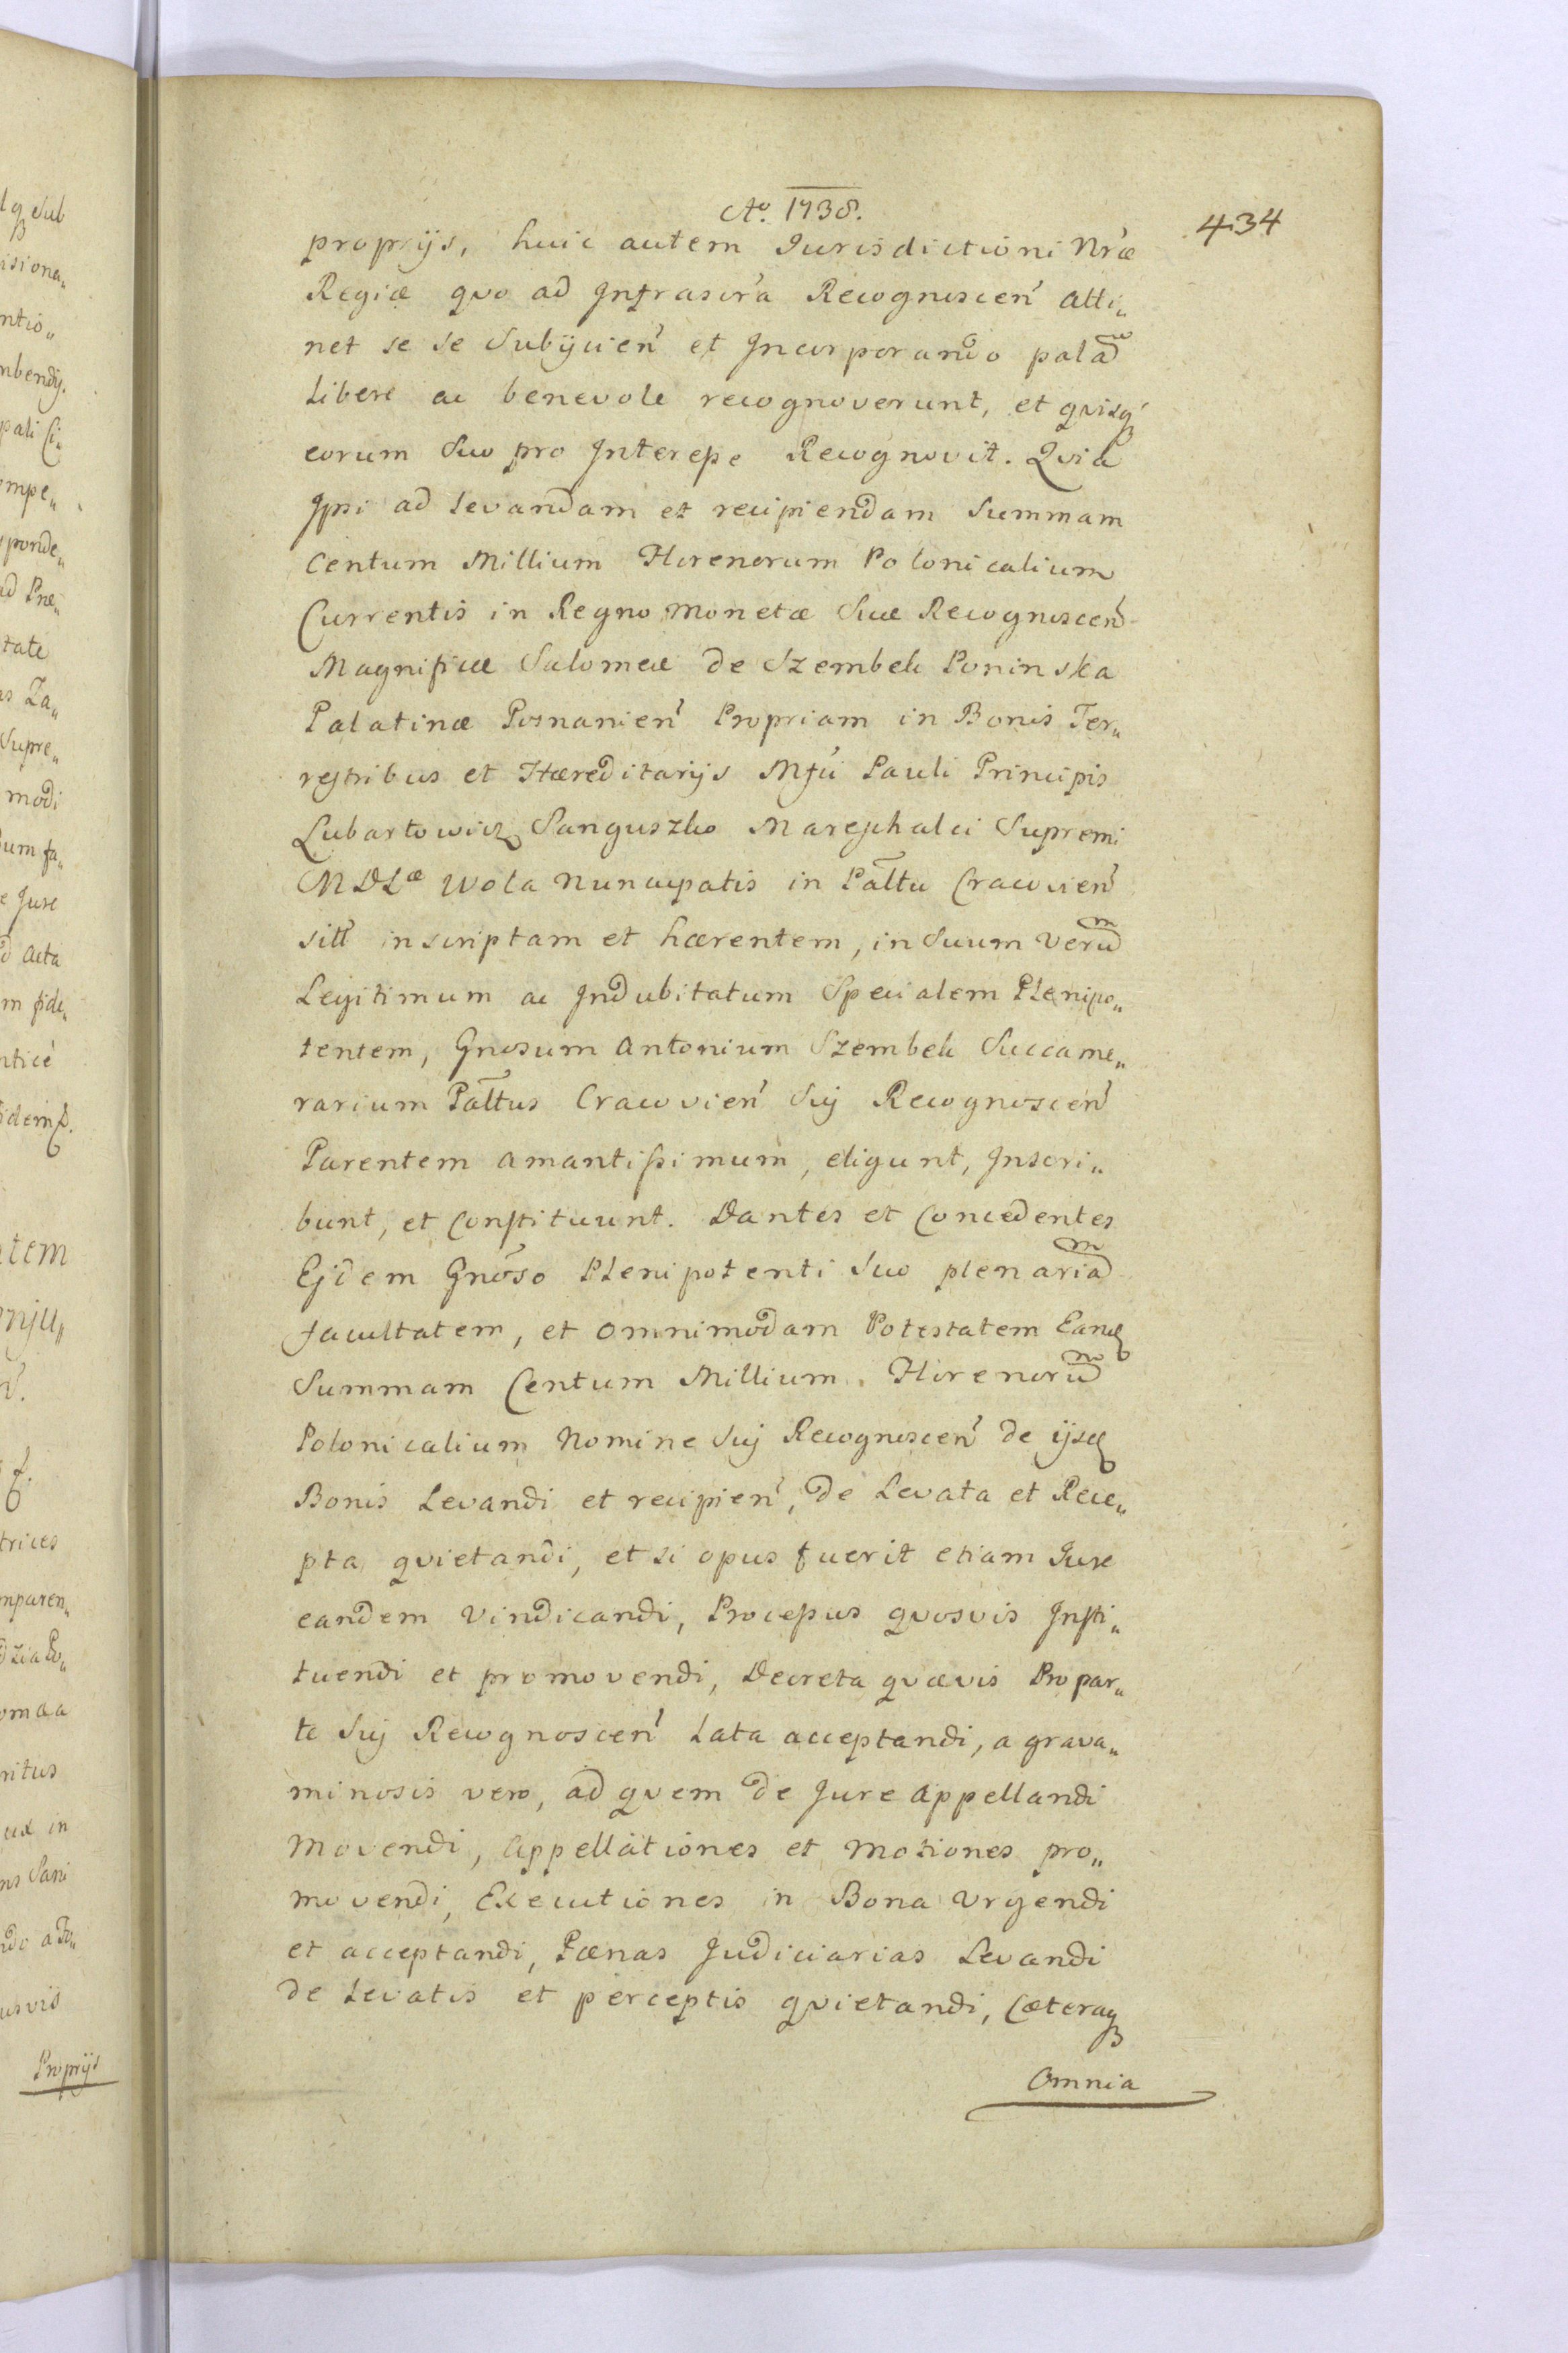 lq Sub
isiona„
ntio„
nbendij.
pali Ci„
ompe„
ponde„
ad Pne„
tate
as Za„
Supre„
modi
um fa„
e Jure
Acta
m fide„
ntice
idem
tem
nju„
trices
mparen„
omaa
ritus
uæ in
ns Sani
usvis
Proprijs
Aº. 1738.
434
proprijs, huic autem Jurisdictioni Nr̃æ
Regiæ quo ad Infrascr̃a Recognoscen̛ atti„
net se se Subijcien̛ et Incorporando palam
Libere ac benevole recognoverunt, et quisq̛
eorum Suo pro Interesse Recognovit. Quia
Ipsi ad levandam et recipiendam Summam
Centum Millium Florenorum Polonicalium
Currentis in Regno Monetæ Suæ Recognoscen̛
Magnificæ Salomeæ de Szembek Poninska
Palatinæ Posnanien̛ Propriam in Bonis Ter„
restribus et Hæreditarijs Mfci Pauli Principis
Lubartowicz Sanguszko Mareschalci Supremi
MDLæ Wola Nuncupatis in Pałtu Cracovien̛
sitt inscriptam et hærentem, in Suum Verum
Legitimum ac Indubitatum Specialem Plenipo„
tentem, Gnosum Antonium Szembek Succame„
rarium Pałtus Cracovien̛ Suj Recognoscen̛
Parentem amantissimum, eligunt, Inscri„
bunt, et Constituunt. Dantes et Concedentes
Ejdem Gnoso Plenipotenti Suo plenariam
facultatem, et omnimodam Potestatem Eand
Summam Centum Millium Florenorum
Polonicalium Nomine Suj Recognoscen̛ de ijsd
Bonis Levandi et recipien̛, de Levata et Rece„
pta quietandi, et si opus fuerit etiam Jure
eandem Vindicandi, Processus quosvis Insti„
tuendi et promovendi, Decreta quævis Pro par„
te Suj Recognoscen̛ Lata acceptandi, a grava„
minosis vero, ad quem de Jure Appellandi
Movendi, Appellationes et Motiones pro„
movendi, Executiones in Bona Urgendi
et acceptandi, Pænas Judiciarias Levandi
de Levatis et perceptis quietandi, Cæteraq
Omnia